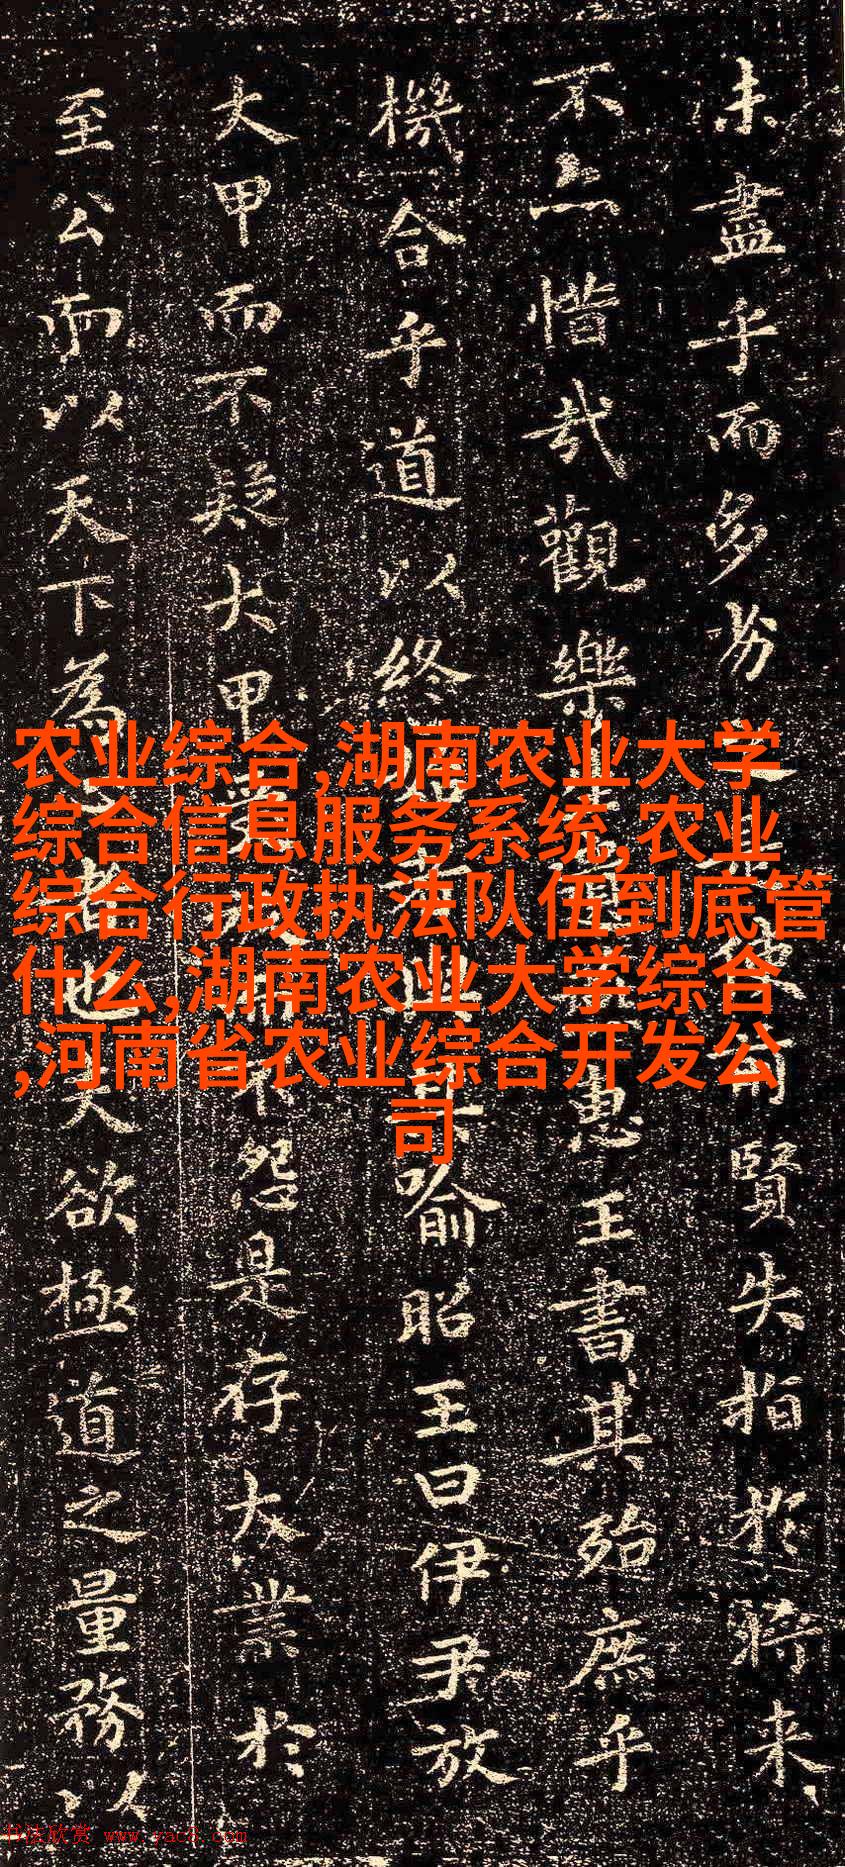 未盡乎而多劣賢失指於将来
不亦惜哉觀樂惠王書其殆庶乎
機合乎道以終喻昭王曰伊尹放
大甲而不疑大甲不怨是存大業於
至公而以天下為者也夫欲極道之量務以
农业综合,湖南农业大学
综合信息服务系统,农业
综合行政执法队伍到底管
什么,湖南农业大学综合
,河南省农业综合开发公
司
书法欣赏 www.yac8.com